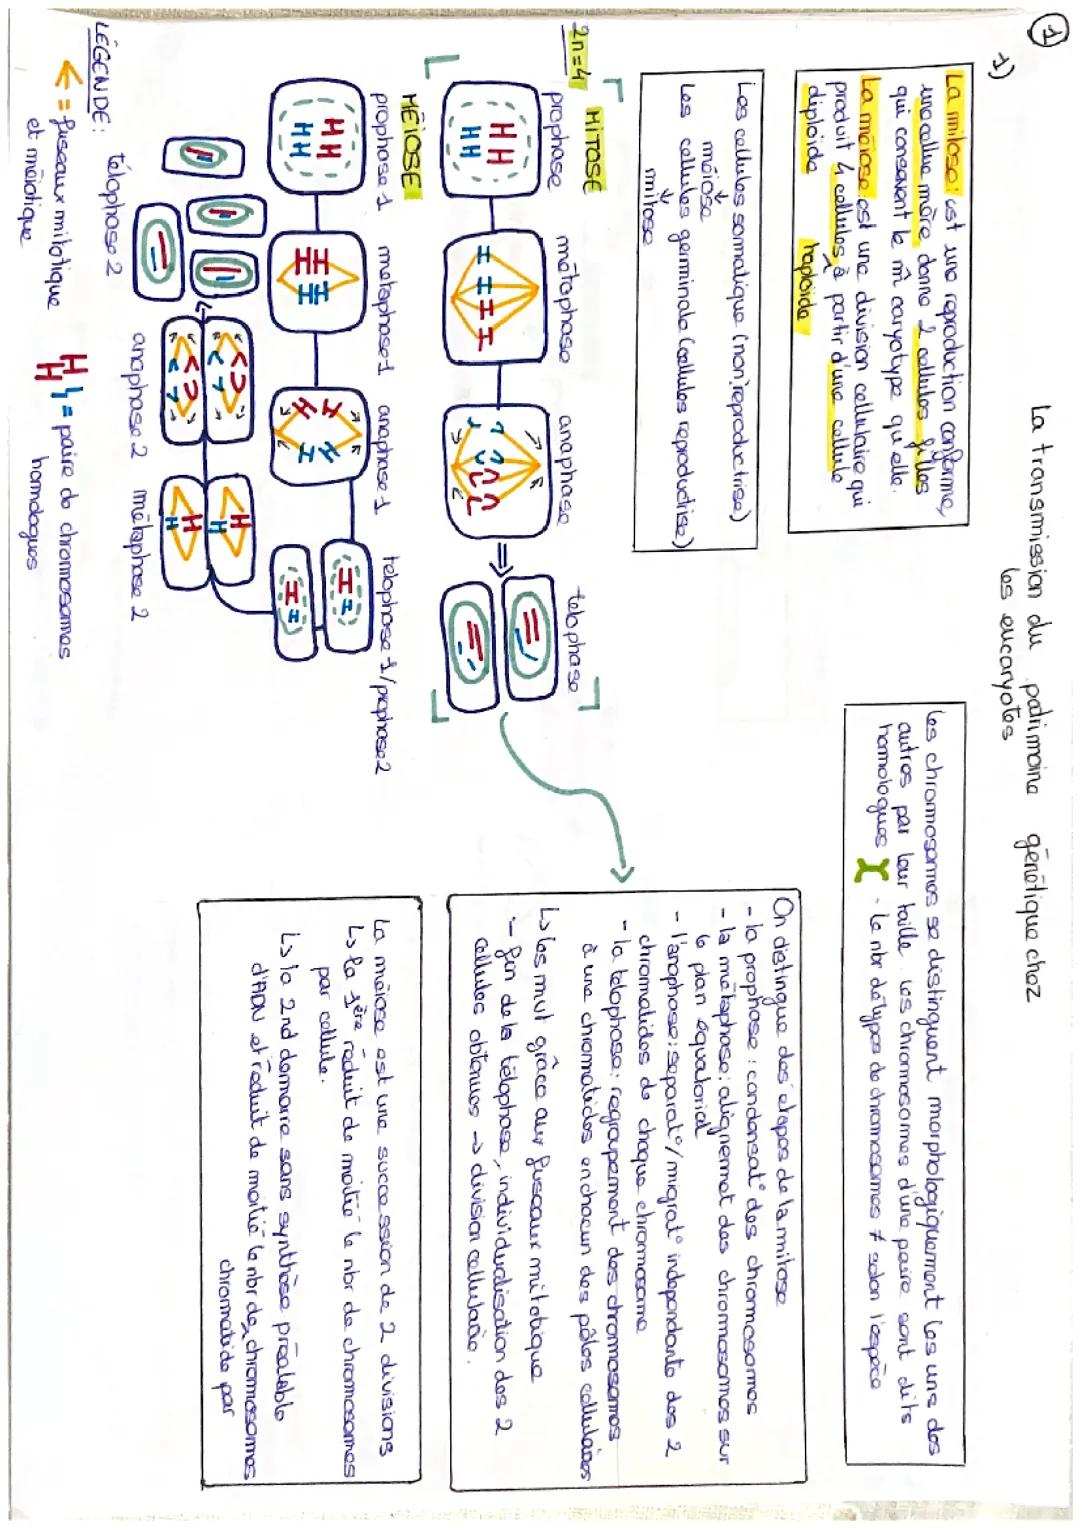 1
La transmission du patrimoine génétique chez
les eucaryotes
1)
La mitose: est une reproduction conforme,
une cellule mère donne 2 cellules filles
qui conservent le m̂ caryotype qu'elle.
La méiose est une division cellulaire qui
produit 4 cellules, à partir d'une cellule
diploïde haploïde
Les chromosomes se distinguent morphologiquement les uns des
autres par leur taille. Les chromosomes d'une paire sont dits
homologues . le nbr de types de chromosomes ≠ selon l'espèce
Les cellules sommatique (non reproductrise)
↓
méiose
Les cellules germinale (cellules reproductrise)
↓
mitose
MITOSE
2n=4
prophase métaphase anaphase télophase
MÉIOSE
prophase 1 métaphase 1 anaphase 1 télophase 1/prophase 2
télophase 2 anaphase 2 métaphase 2
LÉGENDE:
= fuseaux mitotique
et méiotique
= paire de chromosomes
homologues
On distingue des étapes de la mitose
- la prophase : condensat° des chromosomes
- la métaphase : alignement des chromosomes sur
le plan équatorial
- l'anaphase : séparat°/migrat° indépendante des 2
chromatides de chaque chromosome
- la télophase : regroupement des chromosomes
à une chromatides en chacun des pôles cellulaires
↳ les mut grâce aux fuseaux mitotique
- fin de la télophase, individualisation des 2
cellules obtenues → division cellulaire.
La méiose est une succession de 2 divisions
↳ la 1ère réduit de moitié le nbr de chromosomes
par cellule.
↳ la 2nd démarre sans synthèse préalable
d'ADN et réduit de moitié le nbr de chromosomes
chromatide par